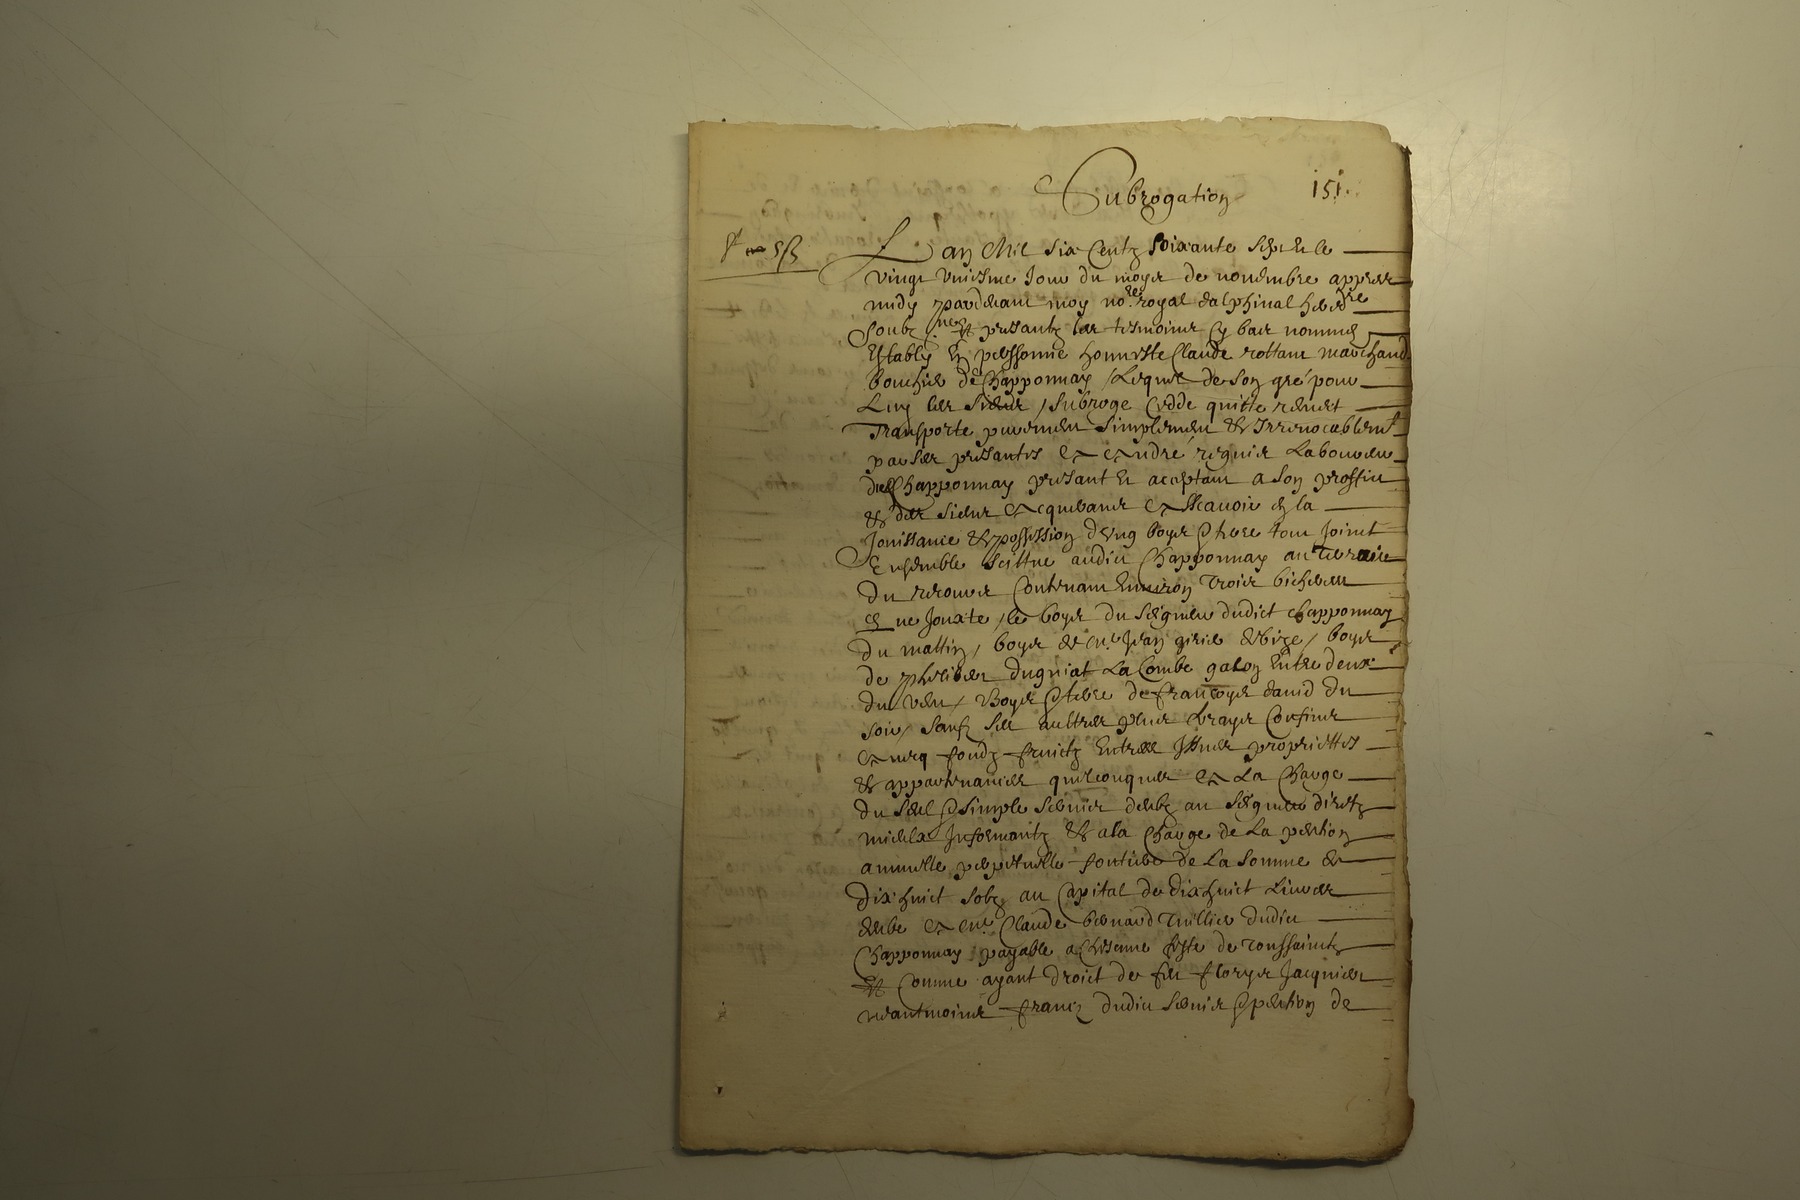 Subrogation
151.
L an Mil six Centz soixante sept et le
vingt uniesme Jour du moys de novembre appres
midy pardevant moy no.re royal dalphinal her.re
soubz.ne et presantz les tesmoins cy bas nommes
Estably En personne honneste Claude rottant marchand
bouchier de Chapponnay / Lequel de son gré pour
Luy les siens / subroge Cedde quitte remet
Transporte purement simplement et Irrevocablemt
par ses presantes a andré reguier Laboureur
dud Chapponnay presant et aceptant a son proffit
et des siens Acquerant A scavoir en la
Jouissance et possession d'ung boys terre tout Joinct
Ensemble scittue audict Chapponnay au terroir
du Contenant Environ trois bicherees
Jouxte / le boys du seigneur dudict chapponnay
du mattin / boys de me Jean de bize / boys
de phelibert dugniat La Combe Entre deux
du vent / Boys terre de francoys david du
soir / sauf ses aultres plus vrays Confins
Avecq fondz fruictz Entrees Issues proprietes
et appartenances quelconques A La Charge
du seul simple servis deubz au seigneur directz
mieulx Informantz et a la Charge de La pention
annuelle perpetuelle fontiere de La somme de
dix huict solz au Capital de dix huict Livres
deube A me Claude bernard dudict
Chapponnay payable a Chescune feste de toussaintz
Comme ayant droict de feu florys Jacquier
neantmoins franc dudict servis pention de